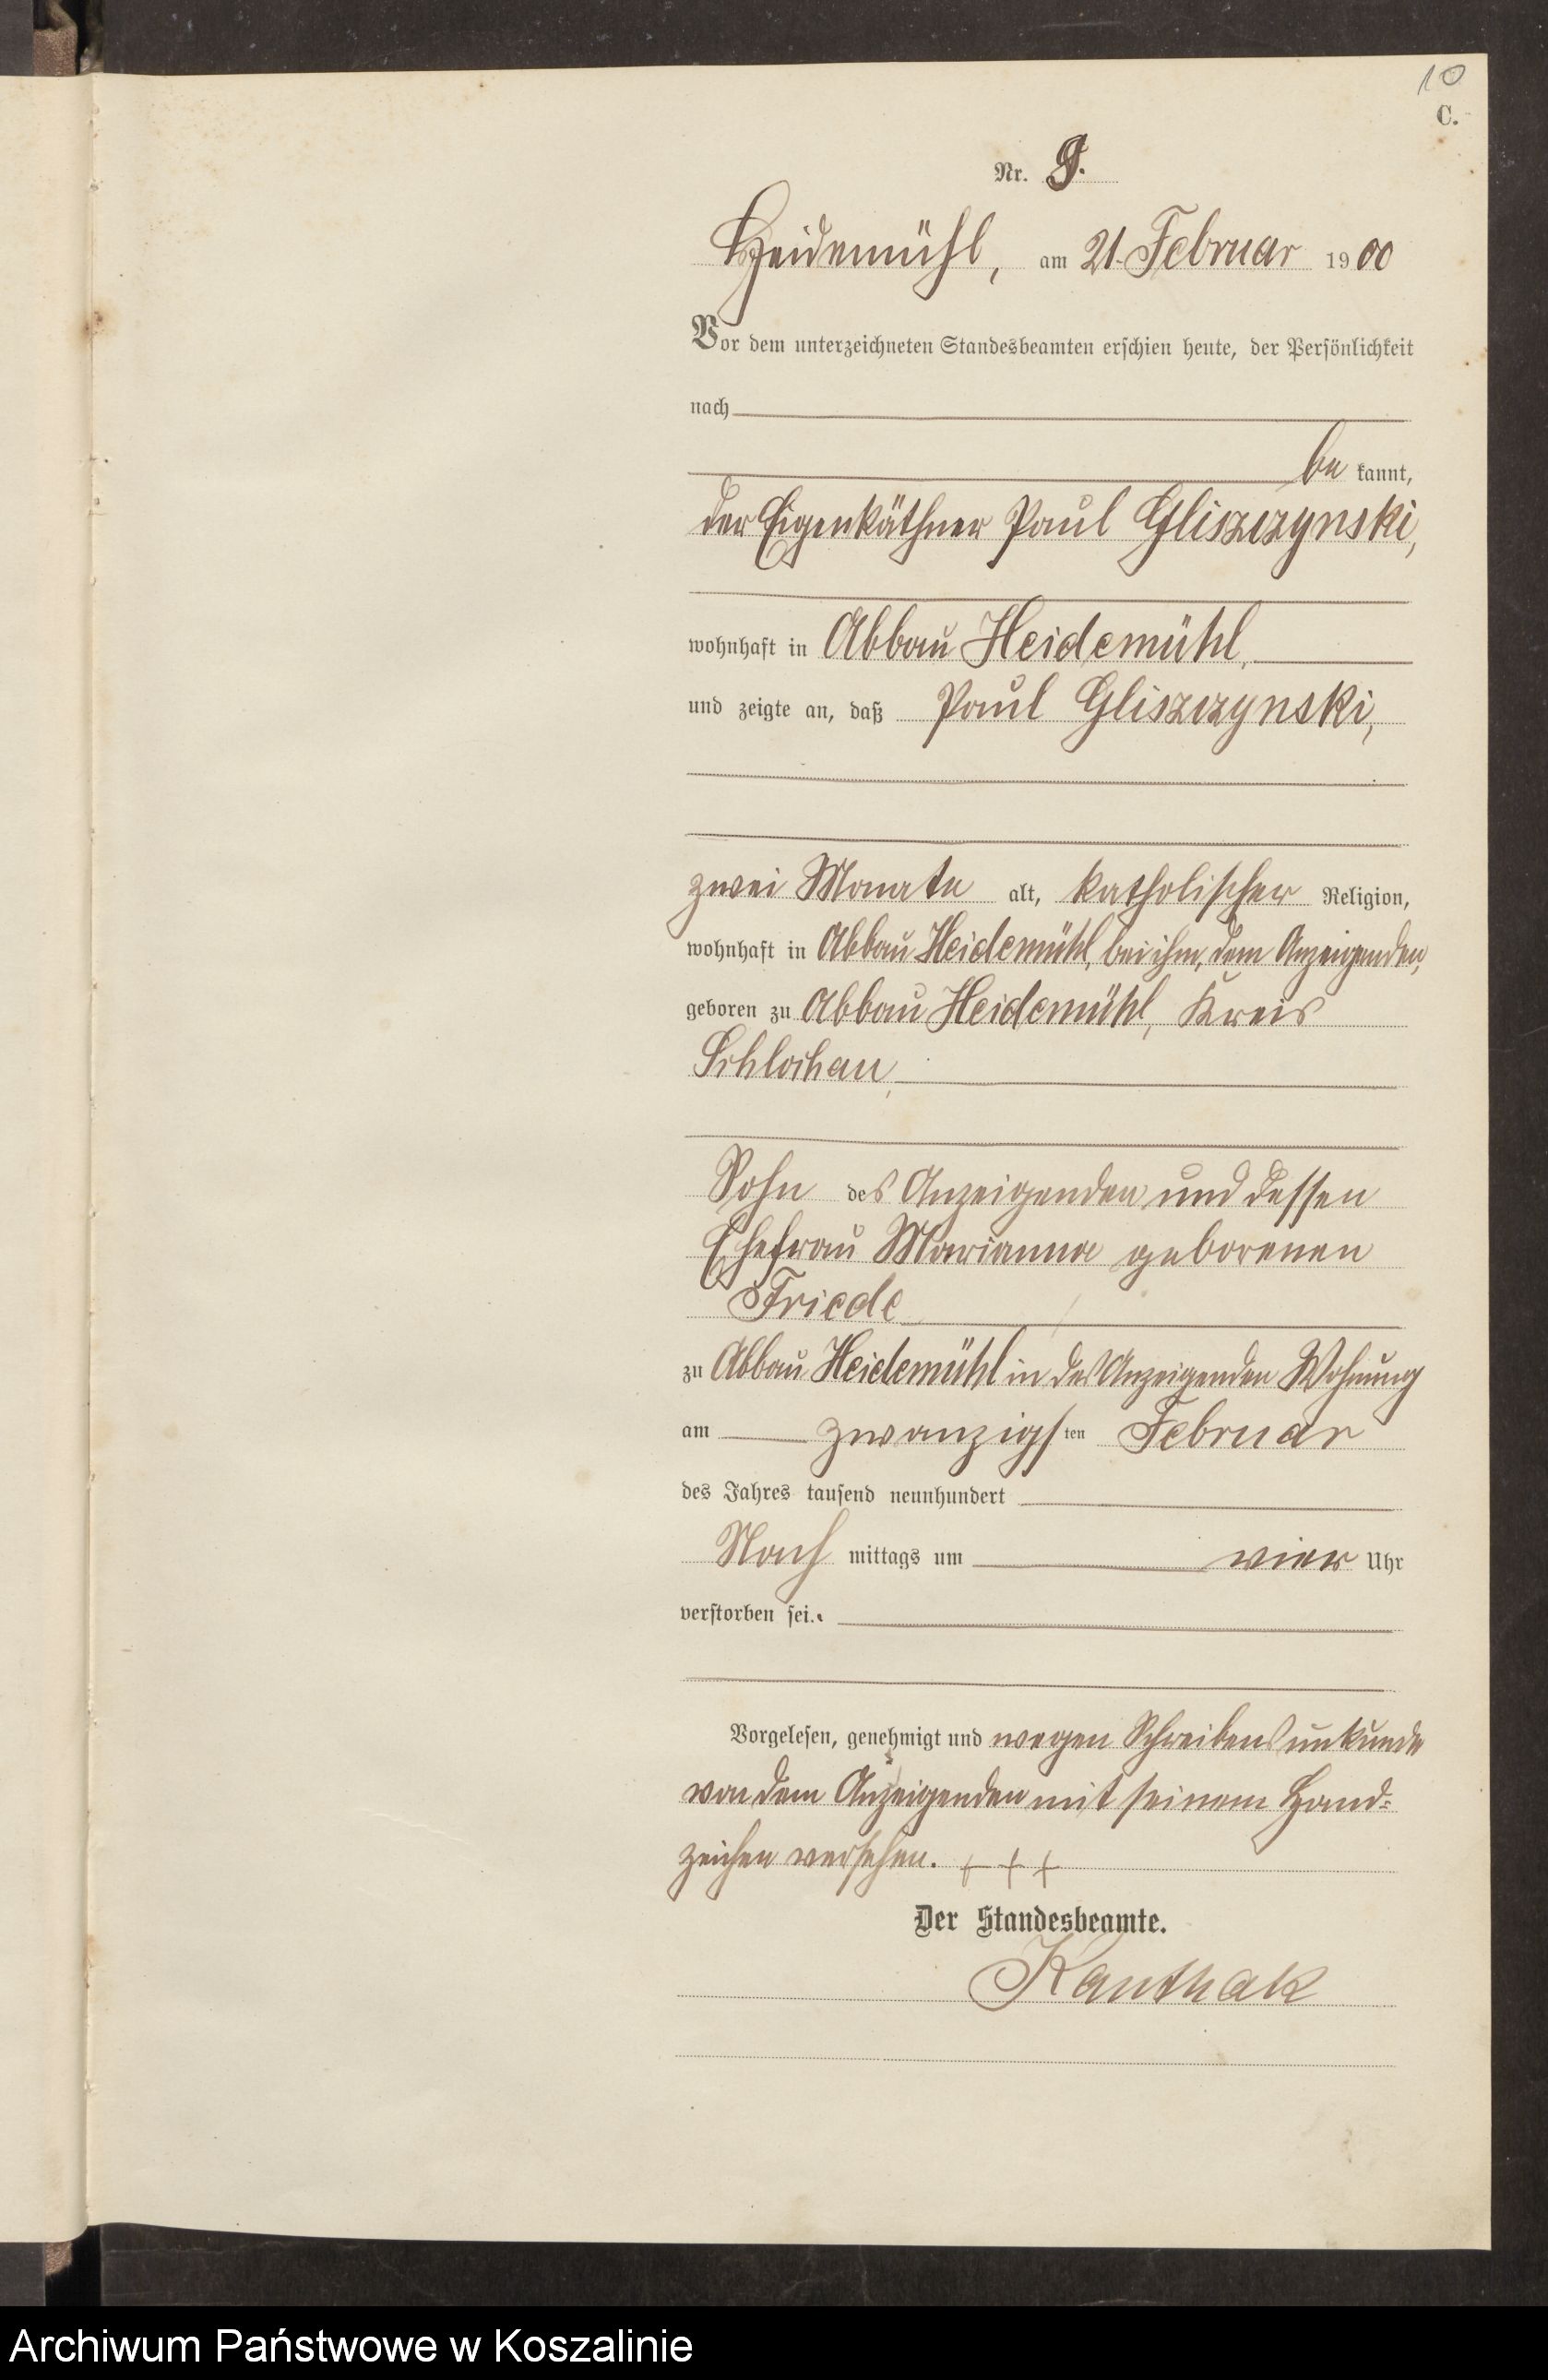 10
C.
Nr. 9.
Heidemühl, am 21. Februar 1900
Vor dem unterzeichneten Standesbeamten erschien heute, der Persönlichkeit
nach
be kannt,
der Eigenkäthner Paul Gliszczynski,
wohnhaft in Abbau Heidemühl,
und zeigte an, daß Paul Gliszczynski,
zwei Monate alt, katholischer Religion,
wohnhaft in Abbau Heidemühl, bei ihm, dem Anzeigenden,
geboren zu Abbau Heidemühl, Kreis
Schlochau,
Sohn des Anzeigenden und dessen
Ehefrau Marianna geborenen
Friede
zu Abbau Heidemühl in des Anzeigenden Wohnung
am zwanzigsten Februar
des Jahres tausend neunhundert
Nach mittags um vier Uhr
verstorben sei.
Vorgelesen, genehmigt und wegen Schreibensunkunde
von dem Anzeigenden mit seinem Hand-
zeichen versehen. + + +
Der Standesbeamte.
Kanthak
Archiwum Państwowe w Koszalinie